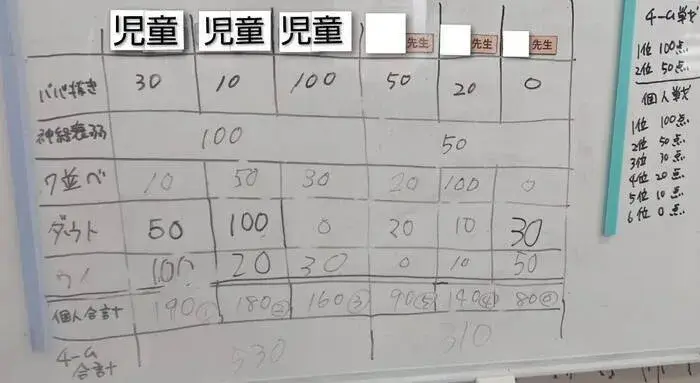 児童 児童 児童 先生 先生 先生
ババ抜き 30 10 100 50 20 0
神経衰弱 100 50
7並べ 10 50 30 20 100 0
ダウト 50 100 0 20 10 30
ウノ 100 20 30 0 10 50
個人合計 190① 180② 160③ 90⑤ 140④ 80⑥
チーム合計 530 310
チーム戦
1位 100点
2位 50点
個人戦
1位 100点
2位 50点
3位 30点
4位 20点
5位 10点
6位 0点